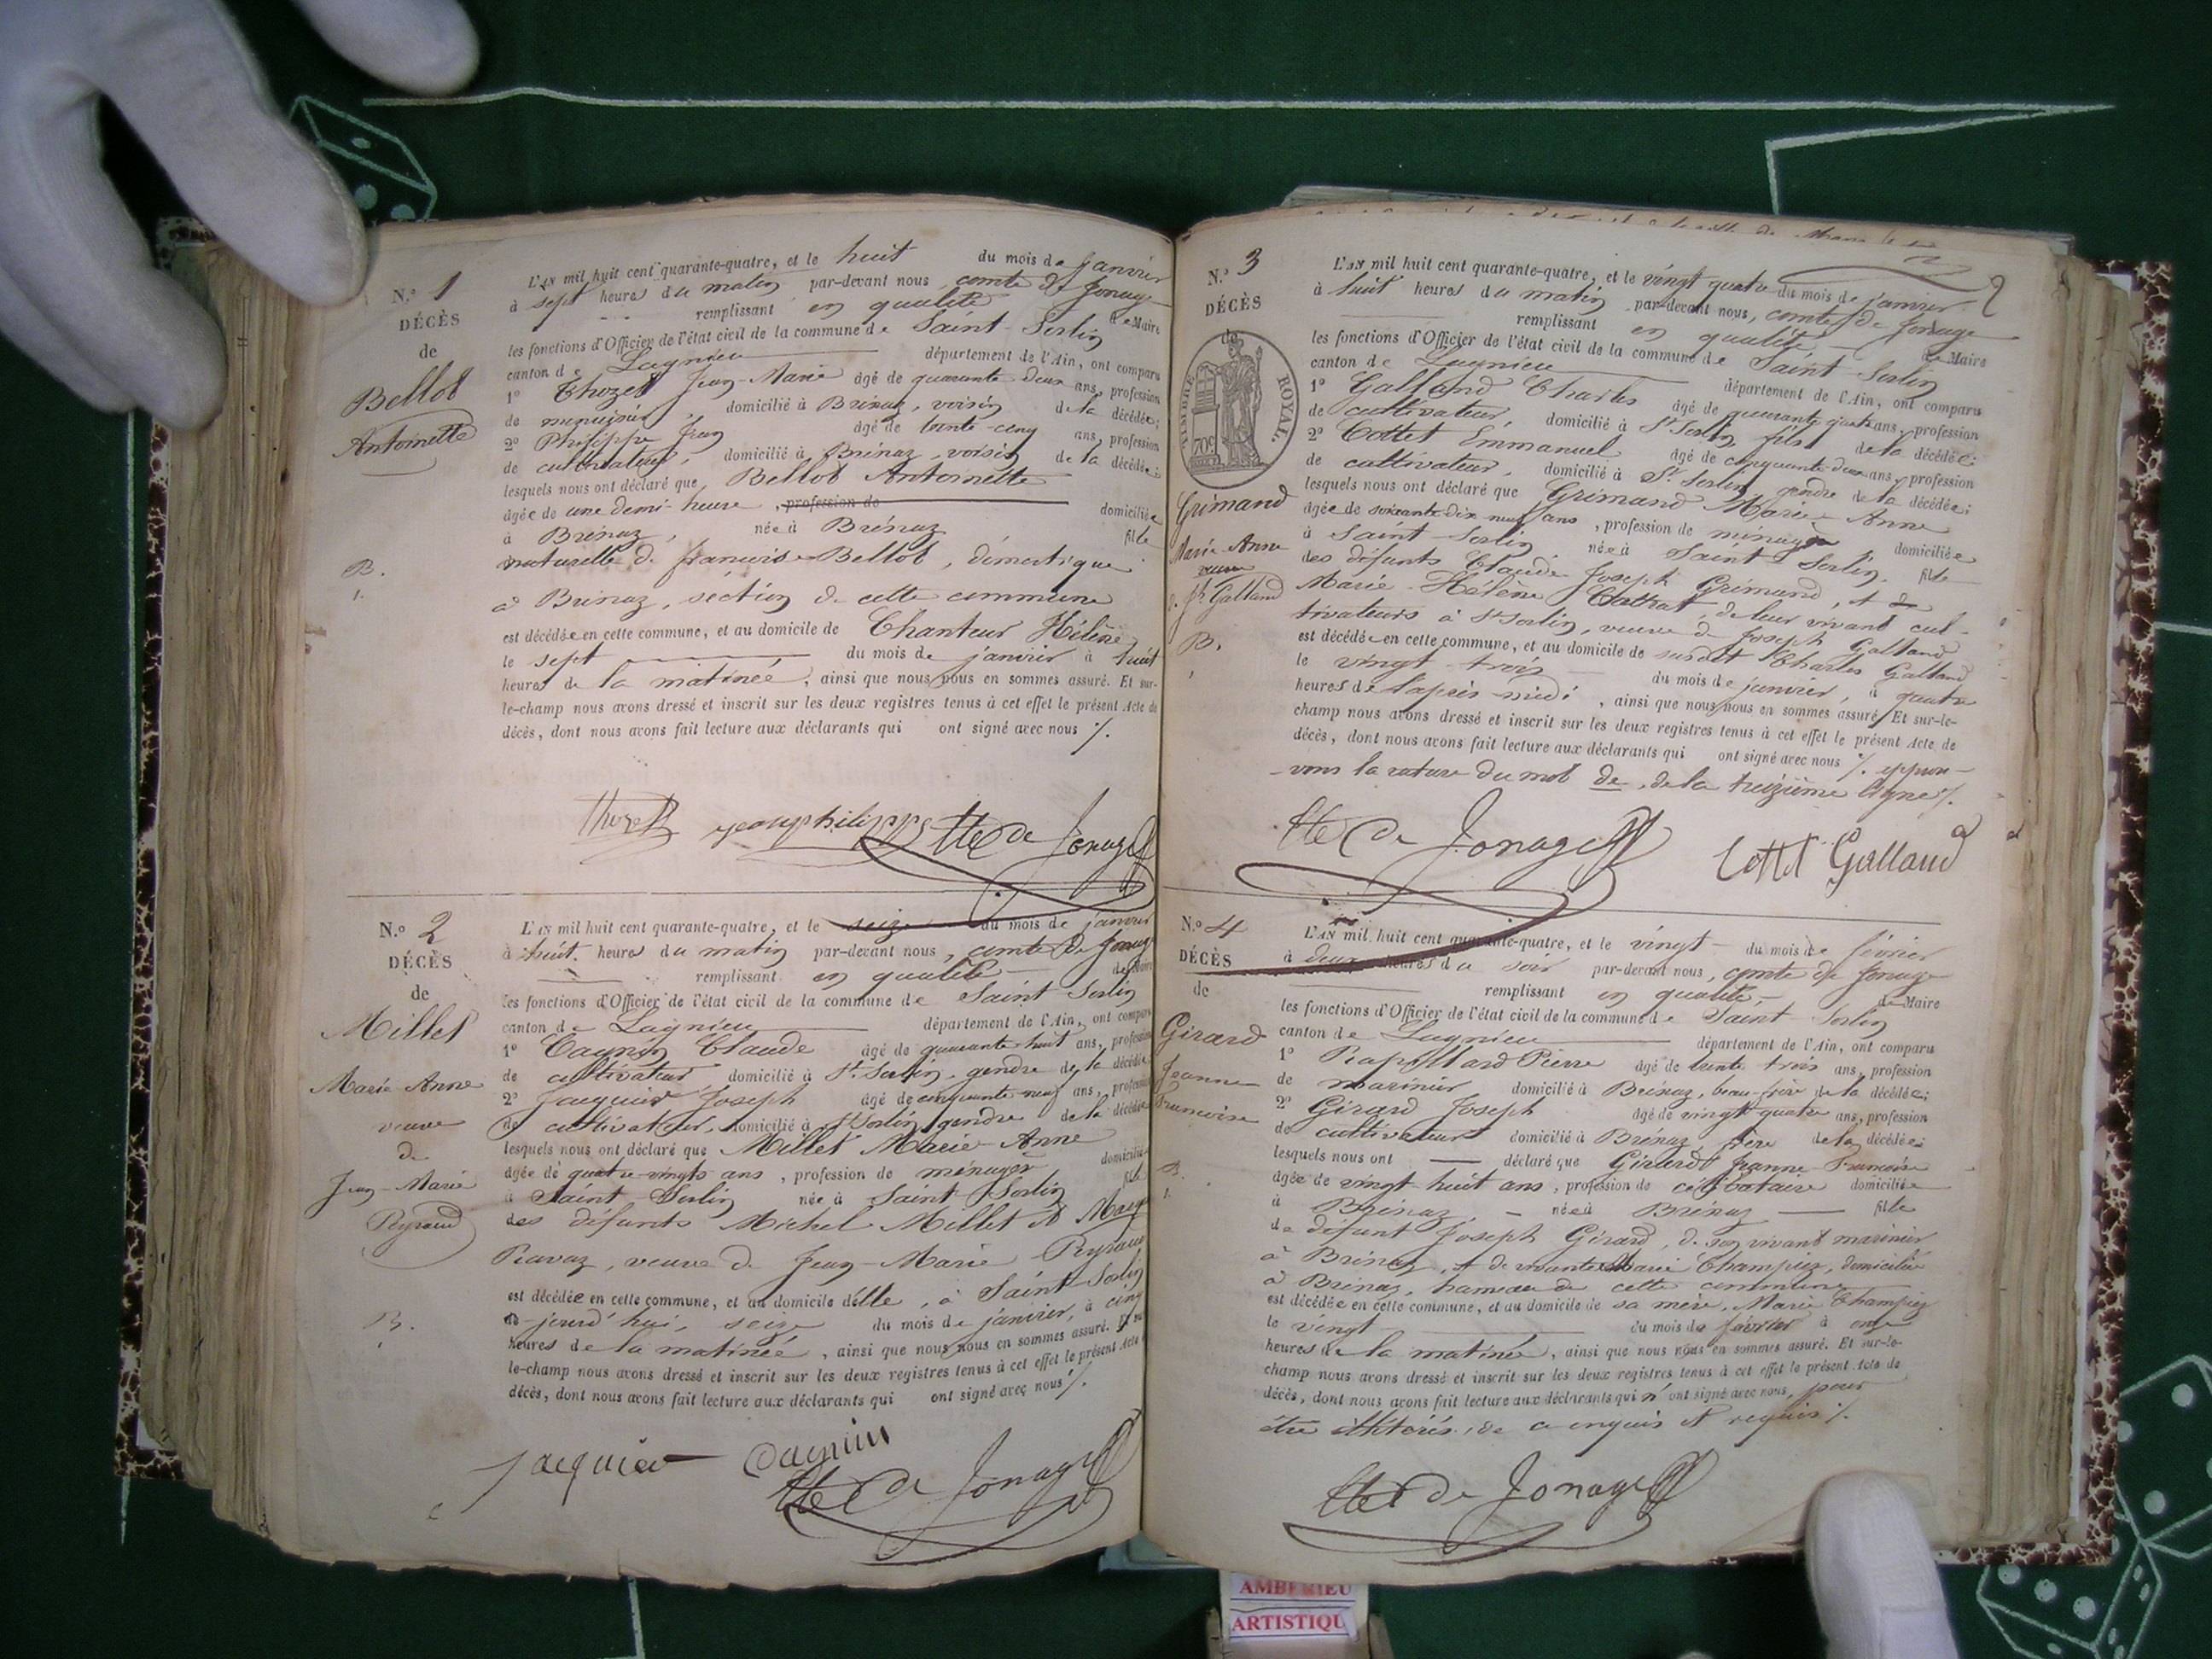 N.º 1
DÉCÈS
de
Bellot
Antoinette
B.
1.
L'AN mil huit cent quarante-quatre, et le huit du mois de janvier
à sept heures du matin par-devant nous, comte de Jonage
remplissant en qualité de Maire
les fonctions d'Officier de l'état civil de la commune de Saint-Sorlin
canton de Lagnieu département de l'Ain, ont comparu
1º Thozet Jean-Marie âgé de quarante deux ans, profession
de menuisier, domicilié à Brénaz, voisin de la décédée;
2º Philippe Jean âgé de trente-cinq ans, profession
de cultivateur, domicilié à Brénaz, voisin de la décédée;
lesquels nous ont déclaré que Bellot Antoinette
âgée de une demi-heure, profession de domiciliée
à Brénaz, née à Brénaz fille
naturelle de françoise Bellot, domestique
à Brénaz, section de cette commune
est décédée en cette commune, et au domicile de Chanteur Hélène
le sept du mois de janvier à huit
heures de la matinée, ainsi que nous nous en sommes assuré. Et sur-
le-champ nous avons dressé et inscrit sur les deux registres tenus à cet effet le présent Acte de
décès, dont nous avons fait lecture aux déclarants qui ont signé avec nous ./.
Thozet jean philippe Cte De Jonage
N.º 2
DÉCÈS
de
Millet
Marie Anne
veuve
de
Jean-Marie
Peyraud
B.
L'AN mil huit cent quarante-quatre, et le seize du mois de janvier
à huit heures du matin par-devant nous, comte de Jonage
remplissant en qualité de Maire
les fonctions d'Officier de l'état civil de la commune de Saint Sorlin
canton de Lagnieu département de l'Ain, ont comparu
1º Cagnin Claude âgé de quarante-huit ans, profession
de cultivateur domicilié à St. Sorlin, gendre de la décédée
2º Jacquier Joseph âgé de cinquante-neuf ans, profession
de cultivateur, domicilié à St Sorlin, gendre de la décédée
lesquels nous ont déclaré que Millet Marie-Anne
âgée de quatre-vingts ans, profession de ménagère domiciliée
à Saint-Sorlin née à Saint-Sorlin fille
des défunts Michel Millet et
Ravaz, veuve de Jean-Marie Peyraud
est décédée en cette commune, et au domicile d'elle, à Saint-Sorlin
jourd'hui, seize du mois de janvier, à cinq
heures de la matinée, ainsi que nous nous en sommes assuré. Et sur-
le-champ nous avons dressé et inscrit sur les deux registres tenus à cet effet le présent Acte
décès, dont nous avons fait lecture aux déclarants qui ont signé avec nous ./.
Jacquier Cagnin
Cte De Jonage
N.º 3
DÉCÈS
de
TIMBRE ROYAL.
70c
Grimand
Marie Anne
veuve
de Jh Galland
B.
L'AN mil huit cent quarante-quatre, et le vingt quatre du mois de janvier
à huit heures du matin par-devant nous, comte de Jonage
remplissant en qualité de Maire
les fonctions d'Officier de l'état civil de la commune de Saint-Sorlin
canton de Lagnieu département de l'Ain, ont comparu
1º Galland Charles âgé de quarante quatre ans, profession
de cultivateur domicilié à St Sorlin, fils de la décédée;
2º Cottet Emmanuel âgé de cinquante-deux ans, profession
de cultivateur, domicilié à St. Sorlin, gendre de la décédée;
lesquels nous ont déclaré que Grimand Marie-Anne
âgée de soixante-dix neuf ans, profession de ménagère domiciliée
à Saint-Sorlin née à Saint-Sorlin, fille
des défunts Claude-Joseph Grimand, et de
Marie-Hélène de leur vivant cul-
tivateurs à St Sorlin, veuve de Joseph Galland
est décédée en cette commune, et au domicile de susdit Charles Galland
le vingt-trois du mois de janvier, à quatre
heures de l'après-midi, ainsi que nous nous en sommes assuré. Et sur-le-
champ nous avons dressé et inscrit sur les deux registres tenus à cet effet le présent Acte de
décès, dont nous avons fait lecture aux déclarants qui ont signé avec nous ./. approu-
vons la rature du mot de, de la treizième ligne ./.
Cte De Jonage Cottet Galland
N.º 4
DÉCÈS
de
Girard
Jeanne
Francoise
B.
1.
L'AN mil huit cent quarante-quatre, et le vingt du mois de février
à deux heures du soir par-devant nous, comte de Jonage
remplissant en qualité, de Maire
les fonctions d'Officier de l'état civil de la commune de Saint Sorlin
canton de Lagnieu département de l'Ain, ont comparu
1º Rapillard Pierre âgé de trente trois ans, profession
de marinier domicilié à Brénaz, beau-frère de la décédée;
2º Girard Joseph âgé de vingt-quatre ans, profession
de cultivateur domicilié à Brénaz, frère de la décédée;
lesquels nous ont déclaré que Girard Jeanne-Francoise
âgée de vingt-huit ans, profession de célibataire domiciliée
à Brénaz, née à Brénaz fille
de défunt Joseph Girard, de son vivant marinier
à Brénaz, et de vivante Marie Champiez, domiciliée
à Brénaz, hameau de cette commune
est décédée en cette commune, et au domicile de sa mère, Marie Champiez
le vingt du mois de février à onze
heures de la matinée, ainsi que nous nous en sommes assuré. Et sur-le-
champ nous avons dressé et inscrit sur les deux registres tenus à cet effet le présent Acte de
décès, dont nous avons fait lecture aux déclarants qui n'ont signé avec nous, pour
être illitérés, de ce enquis et requis ./.
Cte De Jonage
AMBERIEU
ARTISTIQU